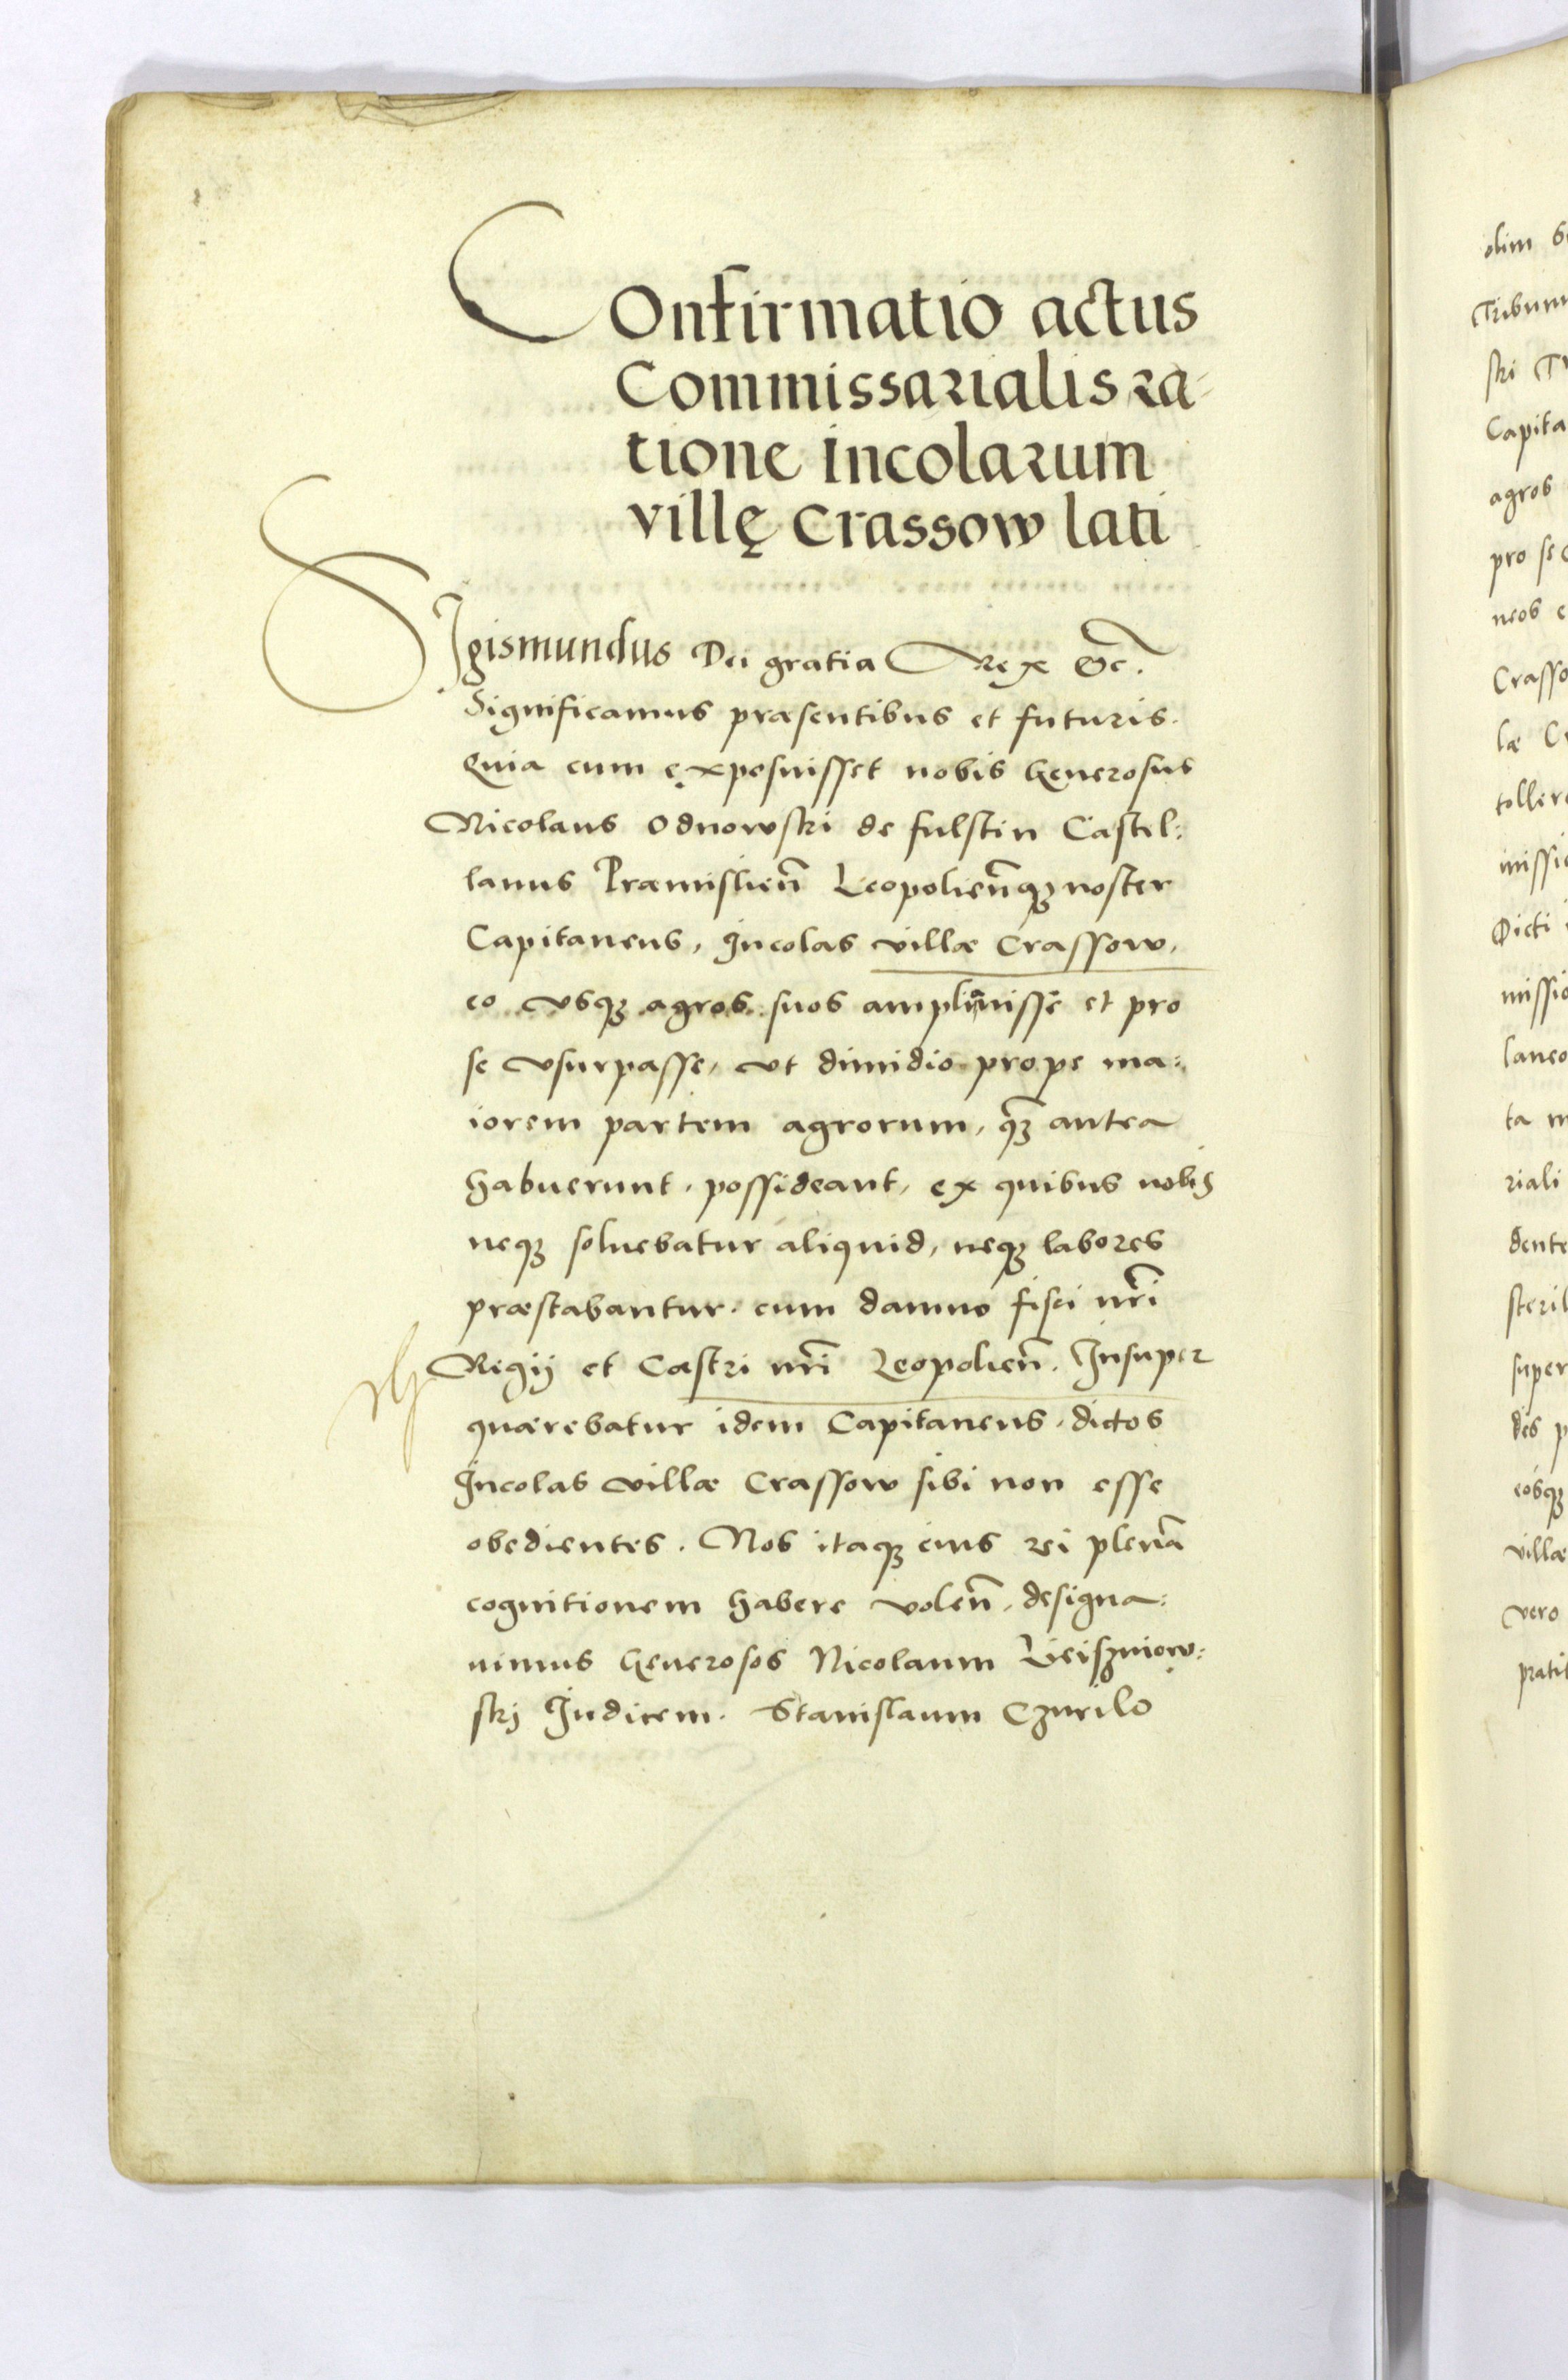 COnfirmatio actus
Commissarialis ra-
tione incolarum
villę Crassow lati
SIgismundus Dei gratia Rex &c.
Significamus præsentibus et futuris.
Quia cum exposuisset nobis Generosus
Nicolaus Odnowski de fulstin Castel:
lanus Præmislien̄ Leopolien̄qꝫ noster
Capitaneus, Incolas villæ Crassow,
eo vsqꝫ agros suos ampliauisse et pro
se vsurpasse, vt dimidio prope ma:
iorem partem agrorum, qꝫ̄ antea
habuerunt, possideant, ex quibus nobis
neqꝫ soluebatur aliquid, neqꝫ labores
præstabantur. cum damno fisci nr̄i
Regij et Castri nr̄i Leopolien̄. Insuper
quærebatur idem Capitaneus, dictos
Incolas villæ Crassow sibi non esse
obedientes. Nos itaqꝫ eius rei plenā
cognitionem habere volen̄, designa:
uimus Generosos Nicolaum
skj Iudicem. Stanislaum Czurilo
olim
Capita
agros
pro se
neos
Crasso
læ
toller
missio
Dicti
missio
laneo
ta
riali
dente
steril
super
eosqꝫ
villæ
vero